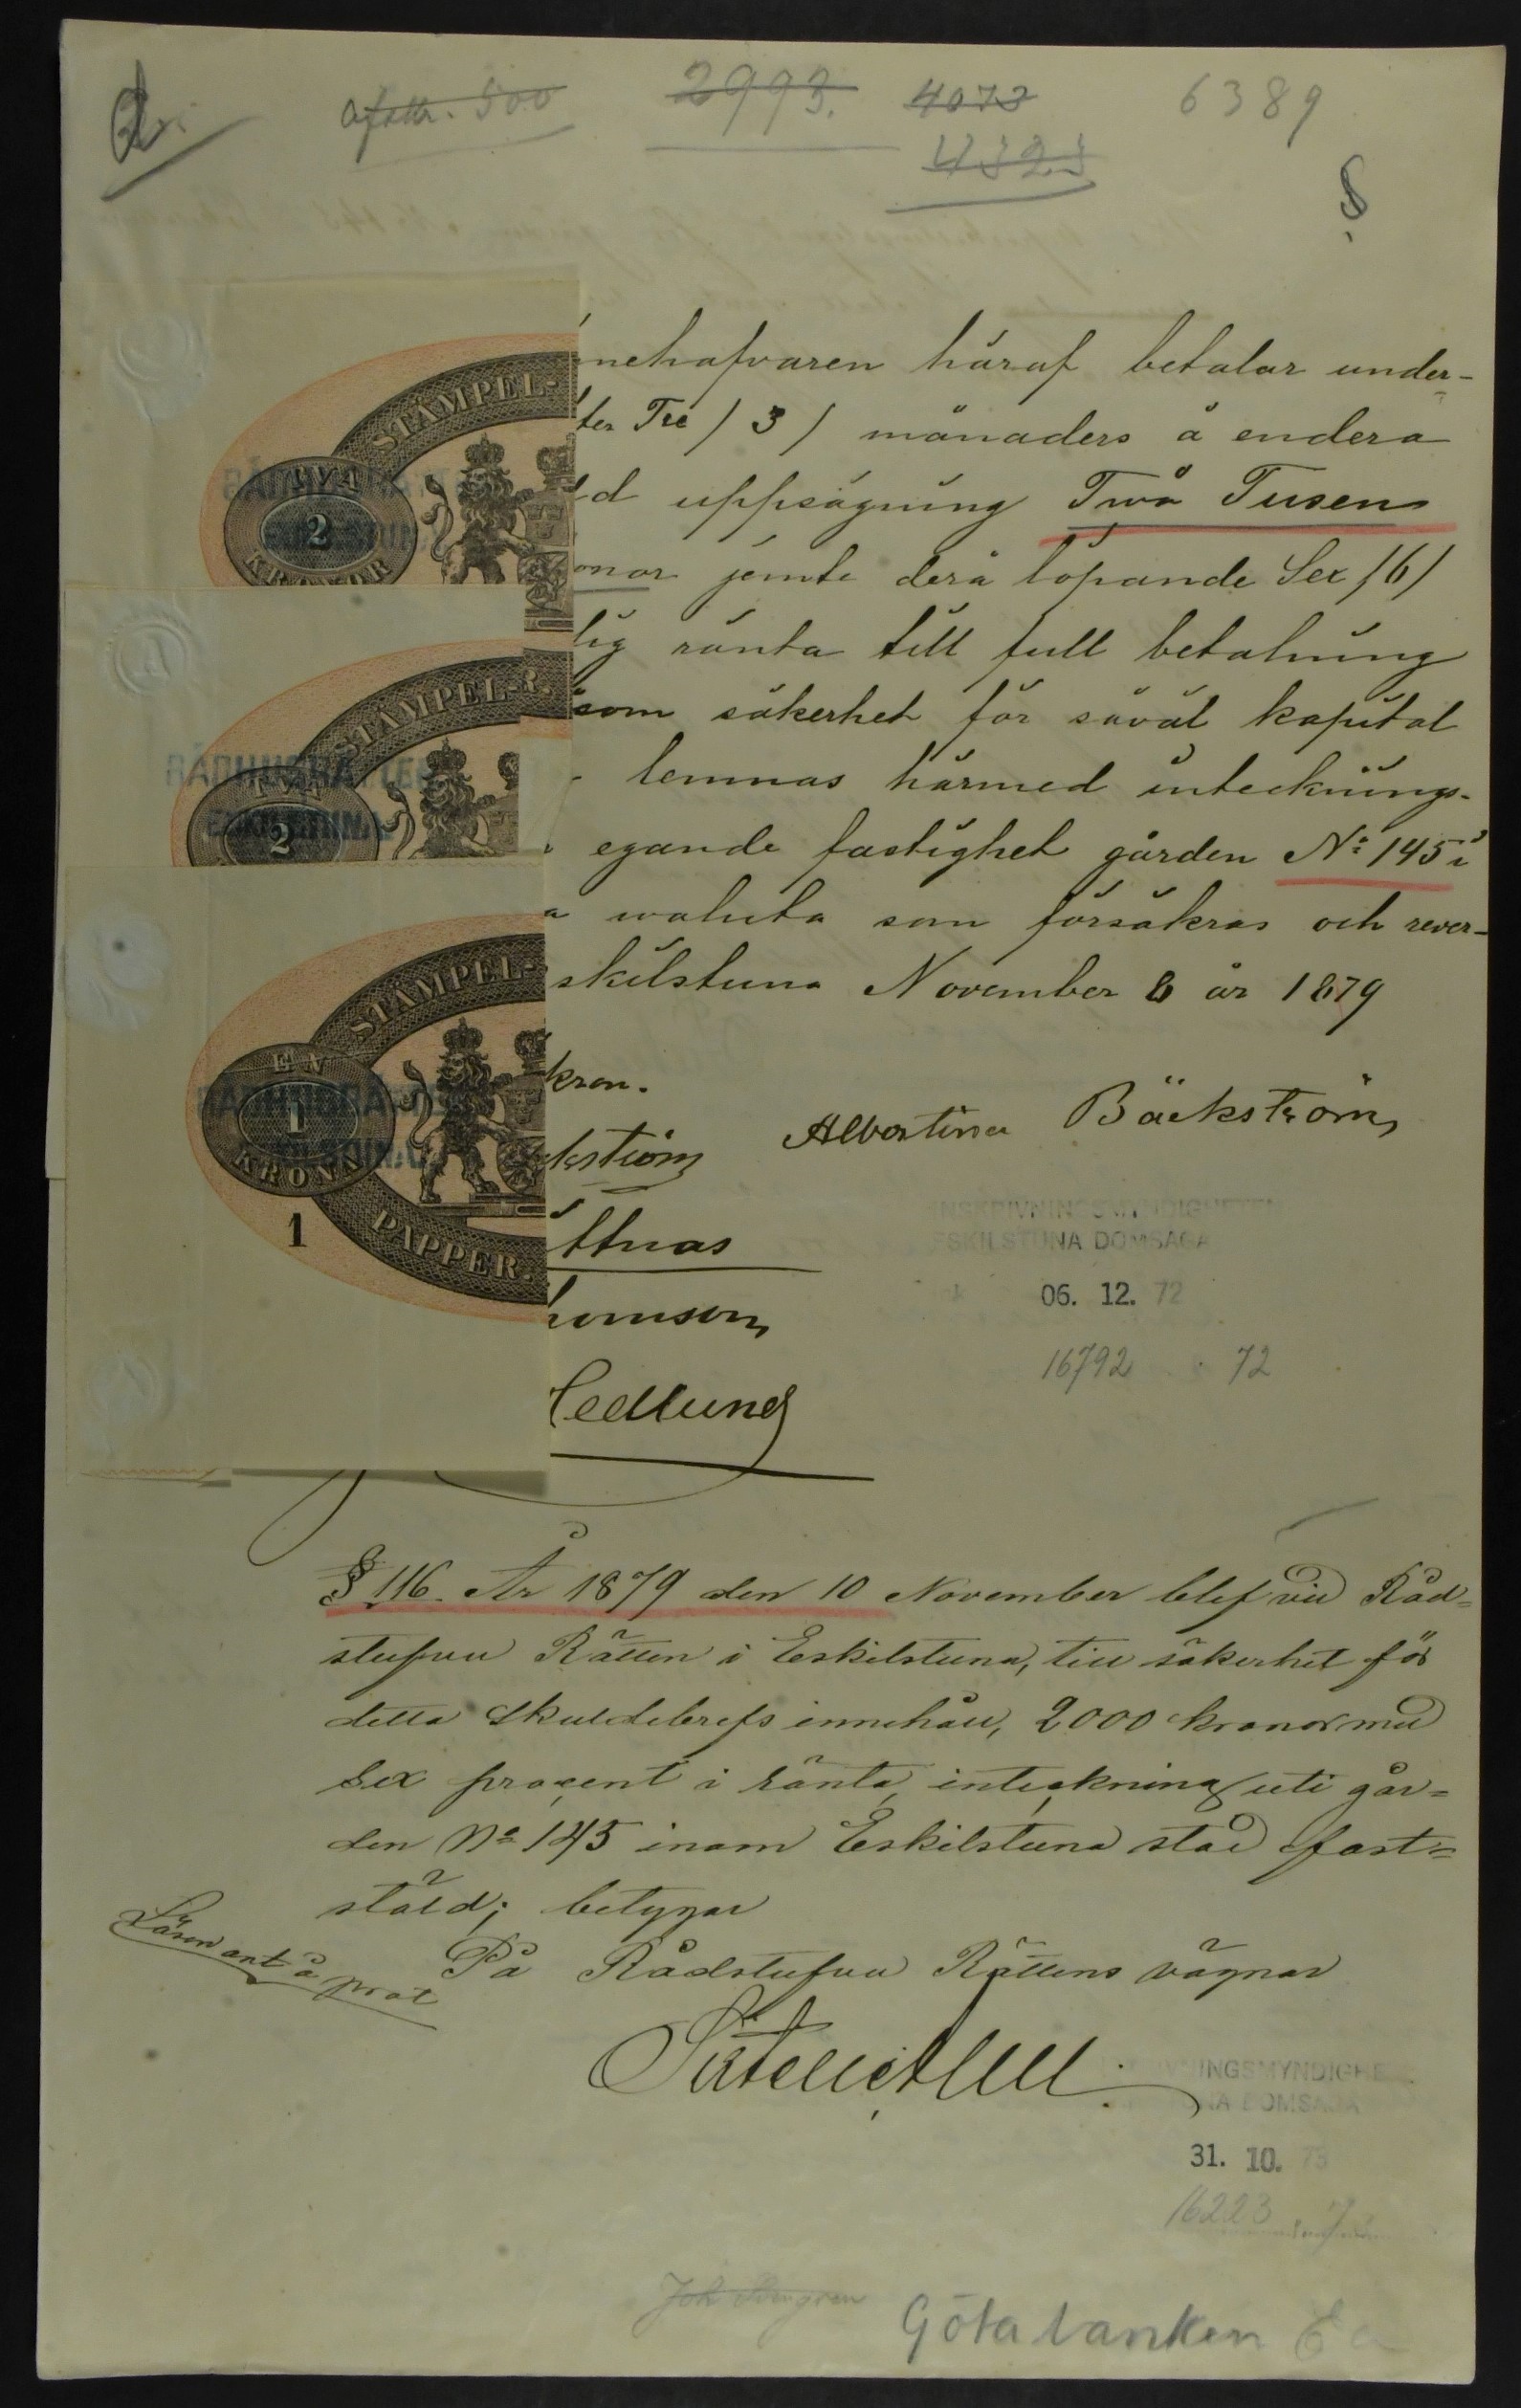 afskr. 500 2993. 4073 6389
4323
8
nnehafvaren häraf betalar under-
ter Tre / 3 / månaders å endera
d uppsägning Två Tusen
onor jemte derå löpande Sex / 6 /
lig ränta till full betalning
som säkerhet för säväl kapital
lemnas härmed intecknings-
egande fastighet gården No 145 i
a waluta som försäkras och rever-
skilstuna November 8 år 1879
kron.
Albertina Bäckström
kström
ttnas
homson
Hedlund
STÄMPEL-
TVÅ
2
KRONOR
STÄMPEL-P.
RÅDHUSRÄTTEN
TVÅ
ESKILSTUNA
2
STÄMPEL-
EN
RÅDHUSRÄTTEN
1
KRONA
1
PAPPER.
INSKRIVNINGSMYNDIGHETEN
ESKILSTUNA DOMSAGA
06. 12. 72
16792 72
§ 116. År 1879 den 10 November blef vid Råd=
stufvu Rätten i Eskilstuna, till säkerhet för
detta skuldebrefs innehåll, 2000 kronor med
sex procent i ränta, inteckning uti går=
den No 145 inom Eskilstuna stad fast=
stäld; betygar
På Rådstufvu Rättens vägnar
Lösen ant. å prot
VNINGSMYNDIGHE
NA DOMSAGA
31. 10. 73
16223
Götabanken Ea